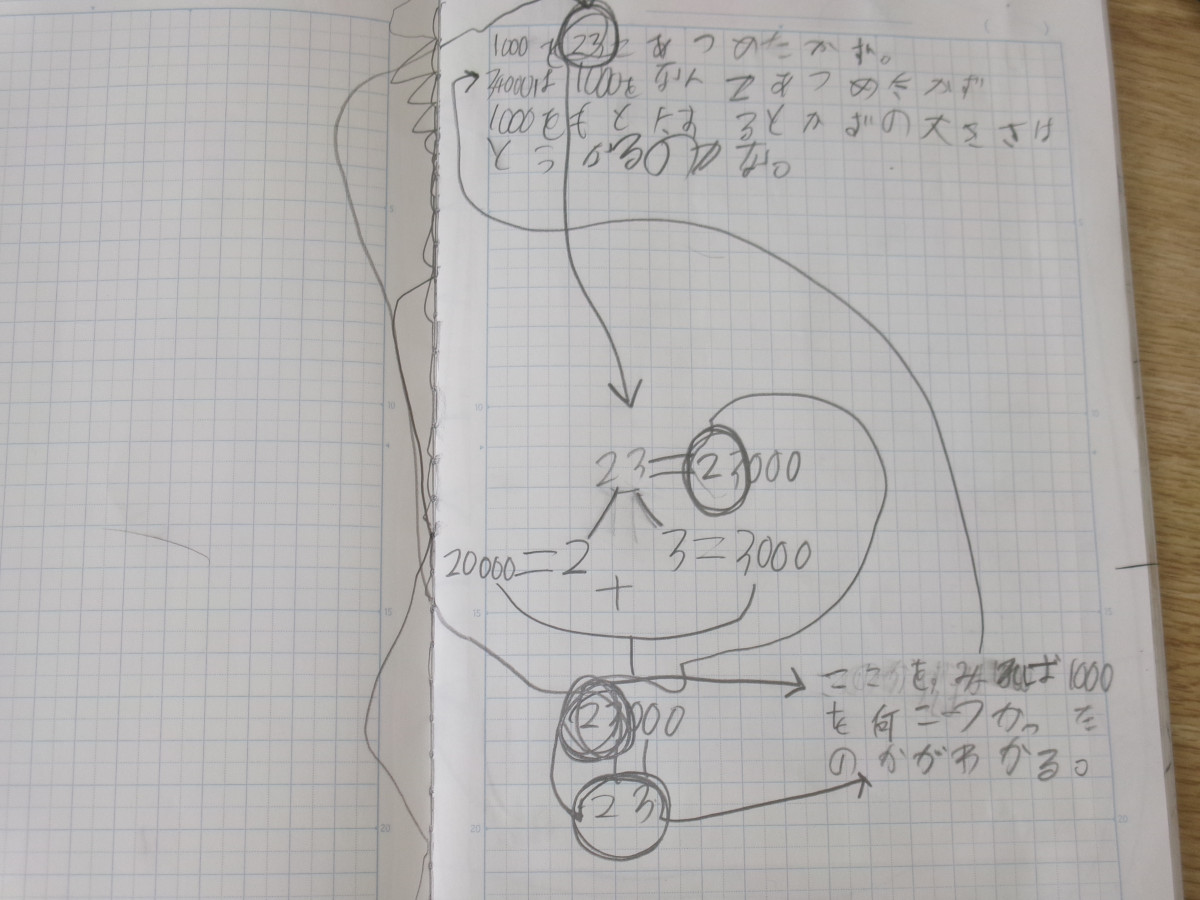 1000を23こあつめたかず。
24000は1000をなんこあつめたかず
1000をもとにするとかずの大きさは
23=23000
20000=2 3=3000
+
ここをみれば1000
23000
を何こつかった
のかがわかる。
23
5
10
15
20
5
10
15
20